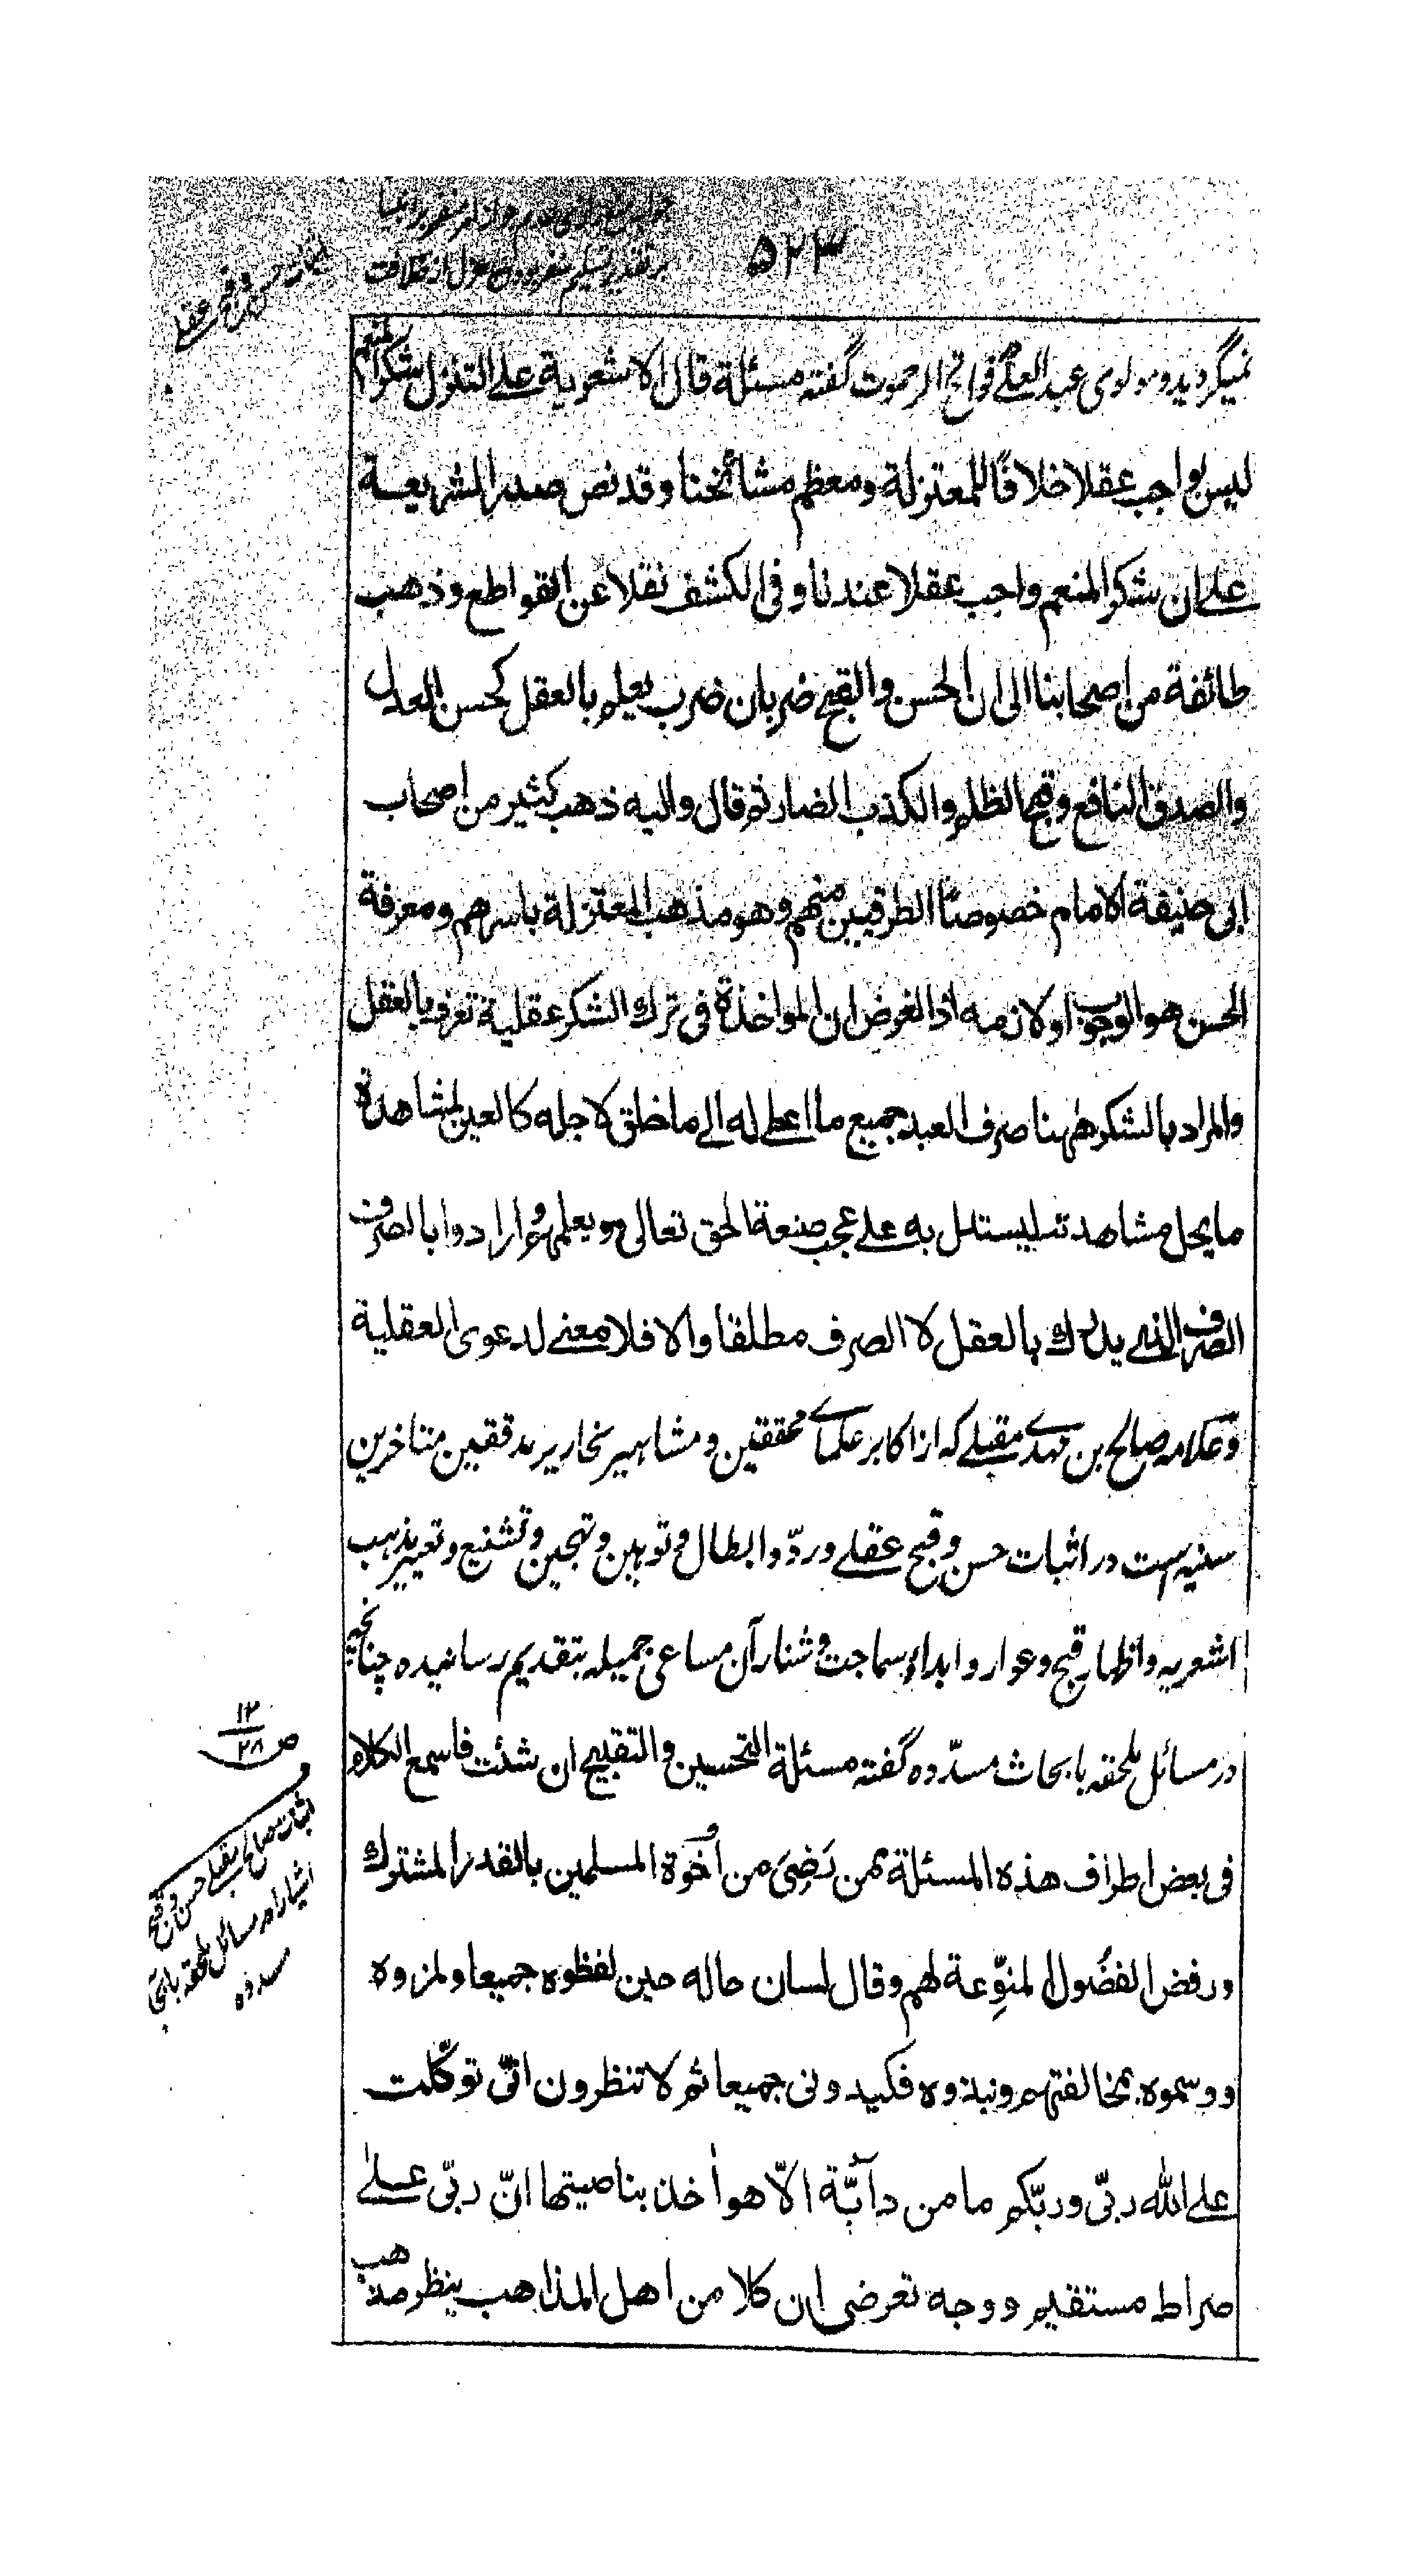 ۵۲۳
نمیگردید و مولوی عبد العلی فواتح الرحموت گفته مسئلة قال الاشعریة علی التنزل شکر المنعم
لیس بواجب عقلا خلافًا للمعتزلة ومعظم مشائخنا وقد نص صدر الشریعة
علی ان شکر المنعم واجب عقلا عندنا وفی الکشف نقلا عن القواطع وذهب
طائفة من اصحابنا الی ان الحسن والقبح ضربان ضرب یعلم بالعقل کحسن العدل
والصدق النافع وقبح الظلم والکذب الضار ثم قال والیه ذهب کثیر من اصحاب
ابی حنیفة الامام خصوصًا الطرقیین منهم وهو مذهب المعتزلة باسرهم ومعرفة
الحسن هو الوجوب او لازمه اذ الغرض ان المواخذة فی ترك الشکر عقلیة تعرف بالعقل
والمراد بالشکر ههنا صرف العبد جمیع ما اعطی له الی ما خلق لاجله کالعین لمشاهدة
ما یحل مشاهدته لیستدل به علی عجب صنعة الحق تعالی ویعلمه وارادوا بالصرف
الصرف الذی یدرك بالعقل لا الصرف مطلقا والا فلا معنی لدعوی العقلیة
وعلامه صالح بن مهدی مقبلی که از اکابر علمای محققین و مشاهیر نحاریر مدققین متاخرین
سنیه است در اثبات حسن و قبح عقلی و ردّ و ابطال و توهین و تهجین و تشنیع و تعییر مذهب
اشعریه و اظهار قبح و عوار و ابداء سماجت و شنار آن مساعی جمیله بتقدیم رسانیده چنانچه
در مسائل ملحقه بابحاث مسدّده گفته مسئلة التحسین والتقبیح ان شئت فاسمع الکلام
فی بعض اطراف هذه المسئلة ممن رَضِیَ من اُخوّة المسلمین بالقدر المشترك
ورفض الفضُول المنوِّعة لهم وقال لسان حاله حین لفظوه جمیعا ولمزوه
ووسموه بمخالفتهم ونبذوه فکیدونی جمیعا ثم لا تنظرون انّی توکّلت
علی الله ربّی وربّکم ما من دآبّة الّا هو اٰخذ بناصیتها انّ ربّی علیٰ
صراط مستقیم ووجه تعرضی ان کلا من اهل المذاهب ینظر مذهب
ص ۱۲ ۲۸
اثبات صالح مقبلی حسن و قبح
اشیا را در مسائل ملحقه بابحاث
مسدده